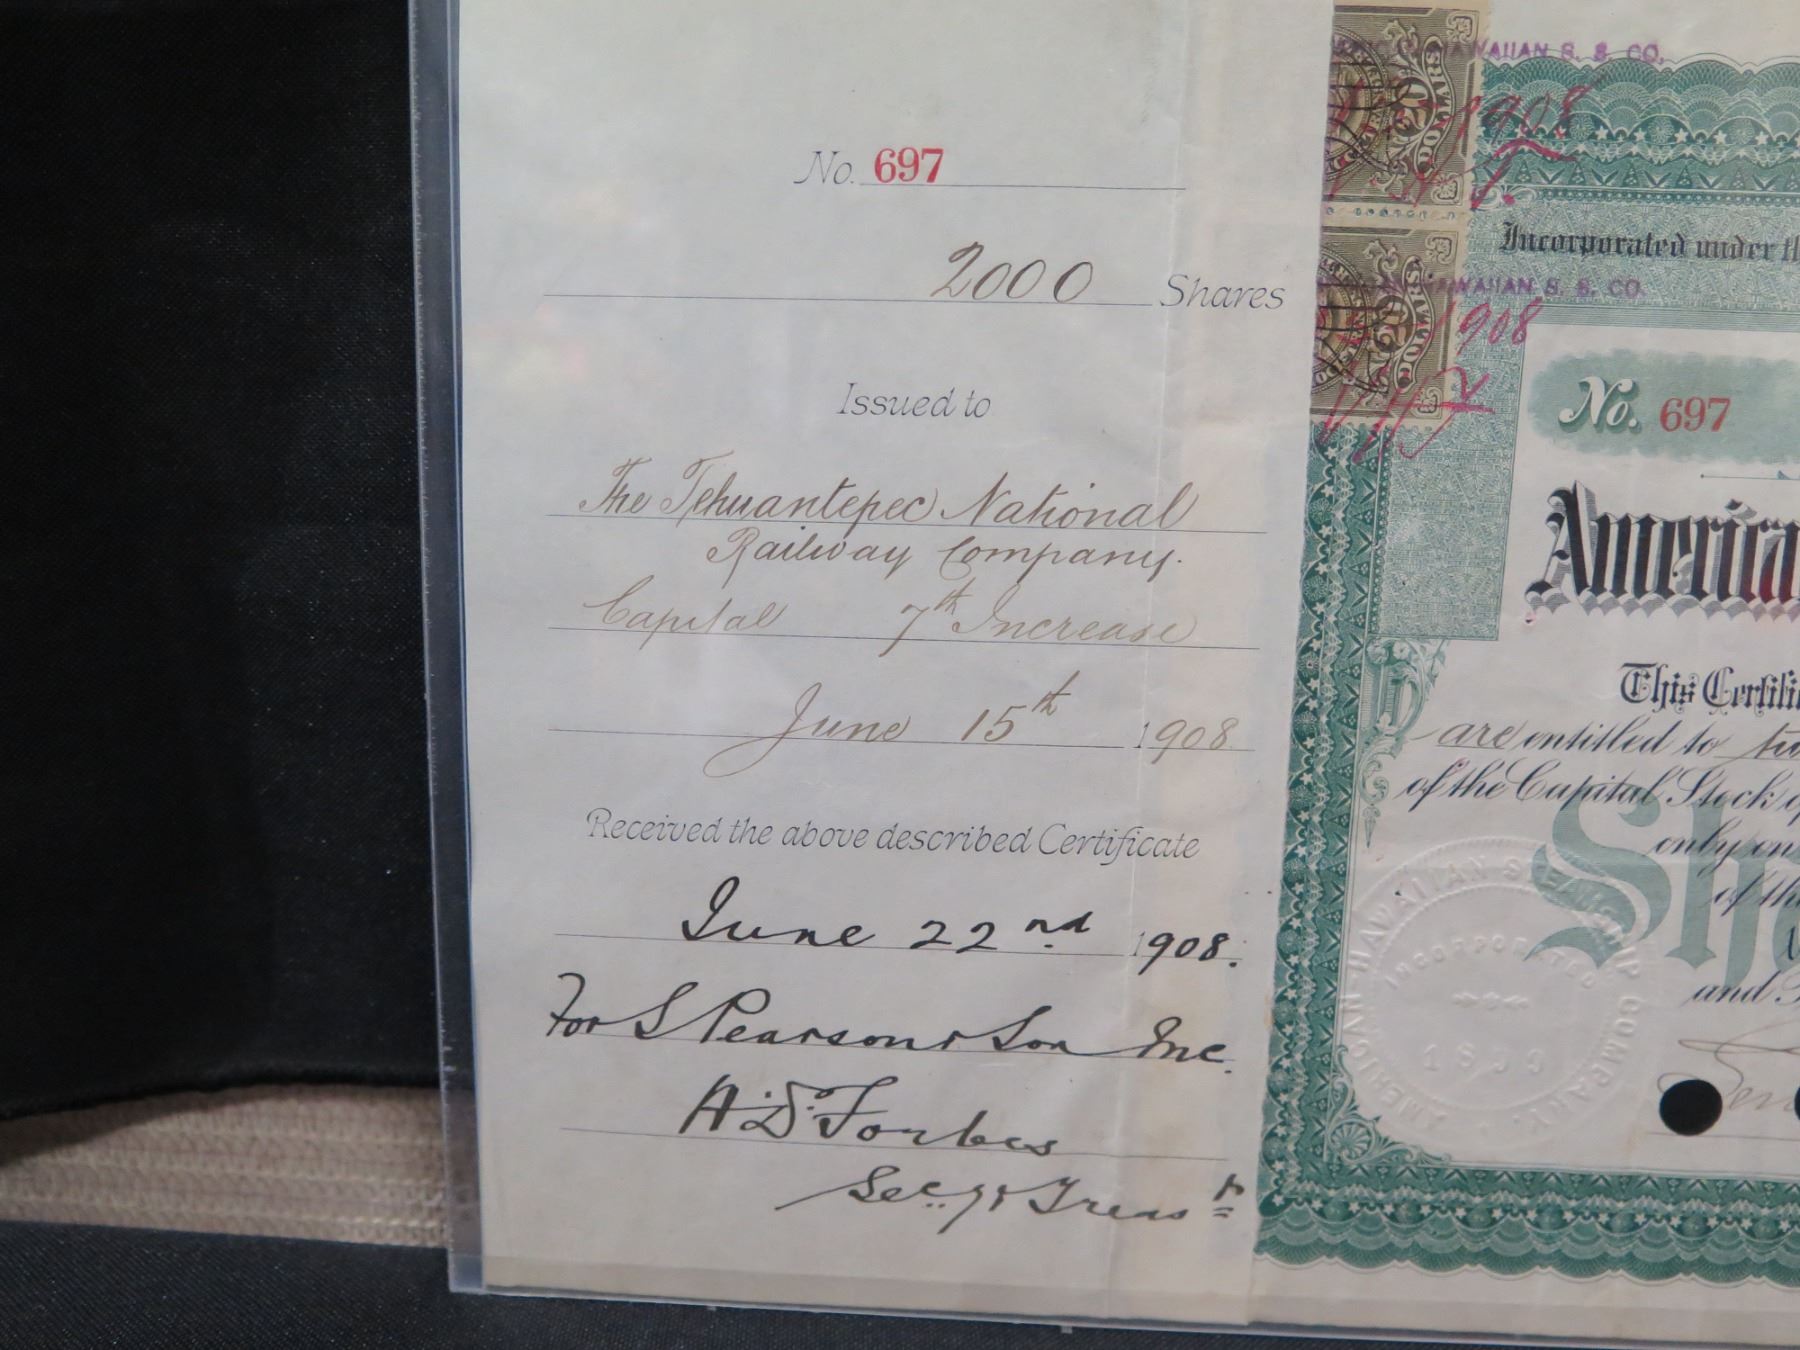 No. 697
2000 Shares
Issued to
The Tehuantepec National
Railway Company.
Capital 7th Increase
June 15th 1908
Received the above described Certificate
June 22nd 1908.
For S Pearson & Son Inc.
H. D. Forbes
Secy & Treasr
HAWAIIAN S. S. CO.
1908
DOLLARS
Incorporated under
HAWAIIAN S. S. CO.
1908
DOLLARS
No. 697
America
This Certifi
are entitled to
of the Capital Stock
only on
of th
Sh
and
AMERICAN HAWAIIAN STEAMSHIP COMPANY
INCORPORATED
1899